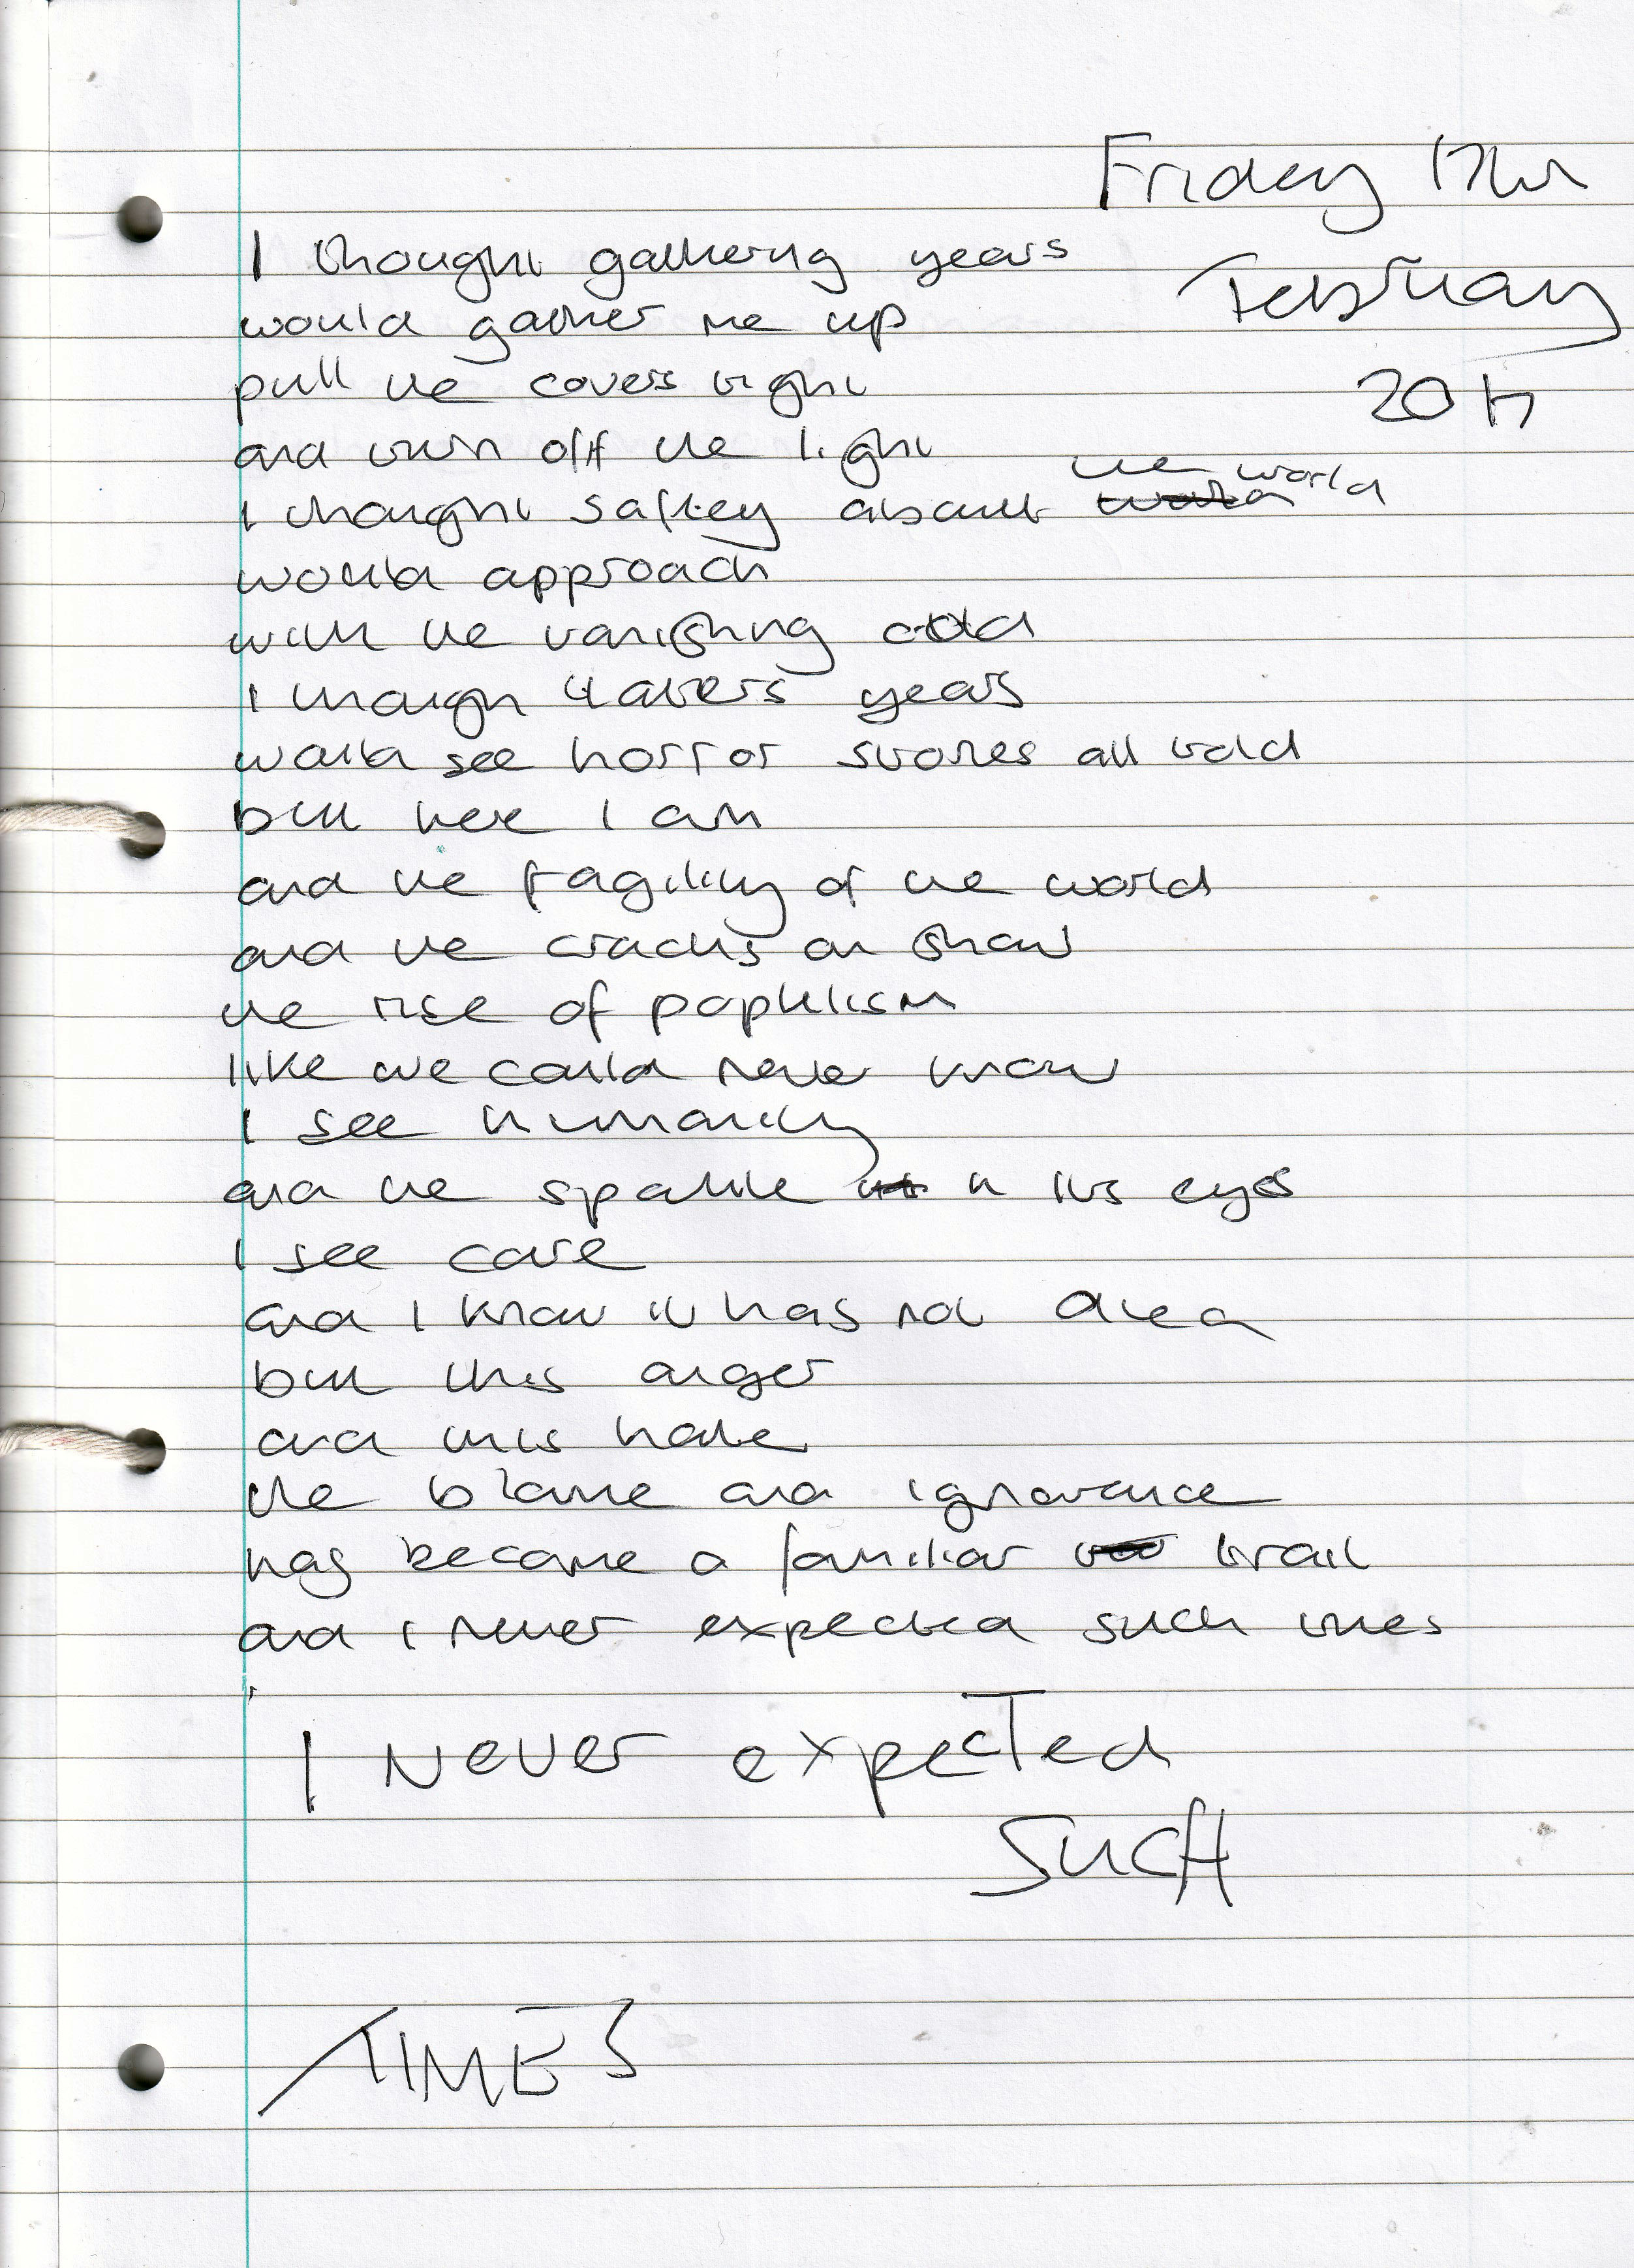 Friday 17th
February
2017
I thought gathering years
would gather me up
pull the covers tight
and turn off the light
I thought saftey about the world
would approach
with the vanishing
I though years
would see horror stories all told
but here I am
and the fragility of the world
and the cracks on show
the rise of populism
like we could never know
I see humanity
and the sparkle in its eyes
I see care
and I know it has not died
but this anger
and this hate
the blame and ignorance
has become a familiar trait
and I never expected such times
I Never expected
SUCH
TIMES